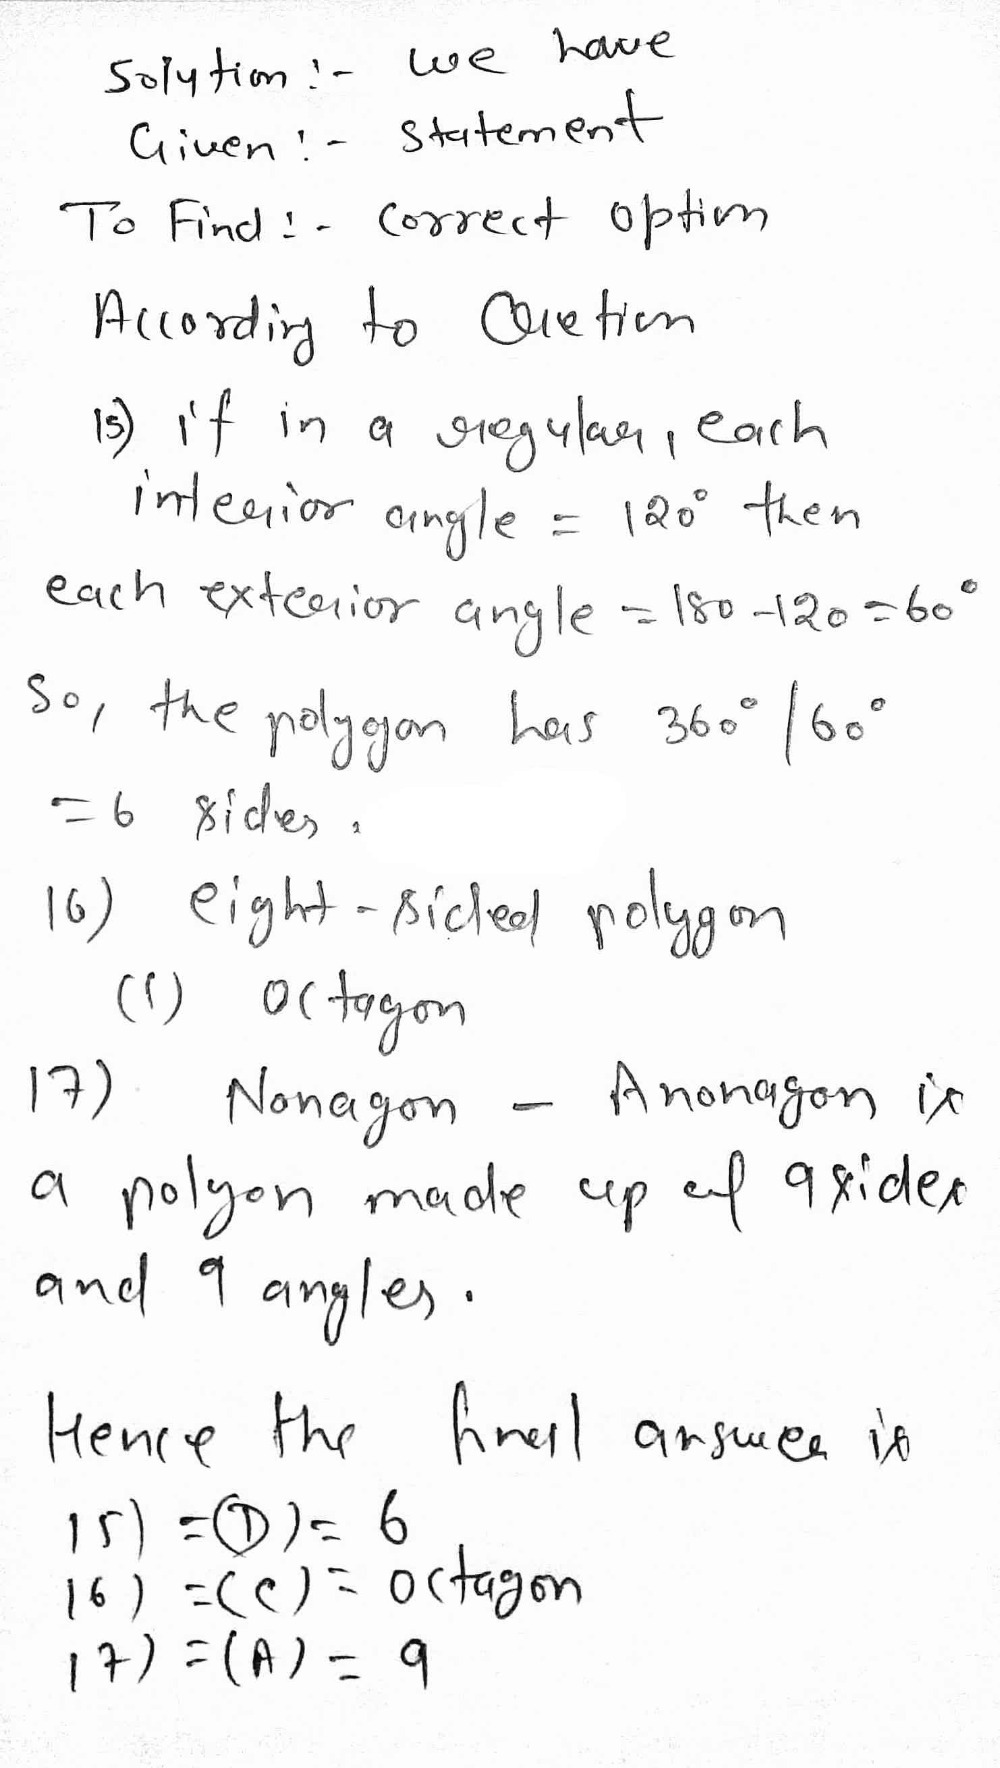 Solution :- we have
Given :- Statement
To Find :- Correct option
According to Quetion
15) if in a regular, each
interior angle = 120° then
each exterior angle = 180-120=60°
So, the polygon has 360°/60°
=6 sides.
16) eight-sided polygon
(() octagon
17) Nonagon - Anonagon is
a polyon made up of 9 sides
and 9 angles.
Hence the final answer is
15) =(D)= 6
16) =(C)= octagon
17) =(A) = 9